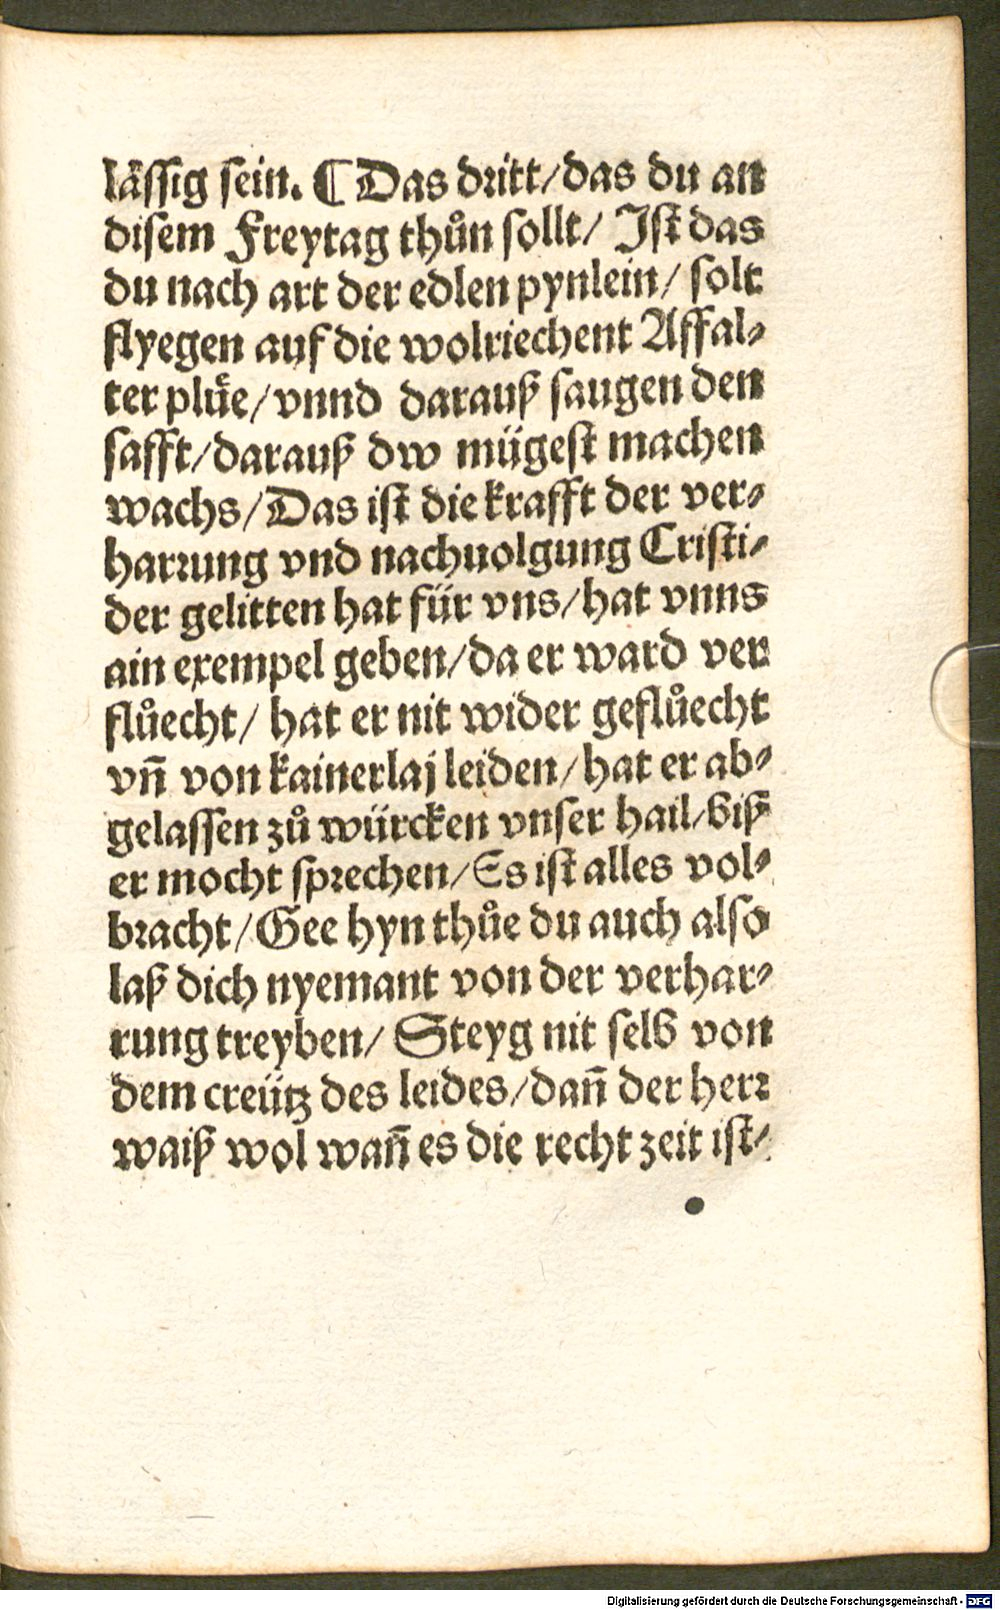 lässig sein. ¶ Das dritt/das du an
disem Freytag thůn sollt/ Ist das
du nach art der edlen pynlein/ solt
flyegen auf die wolriechent Affal-
ter plüe/vnnd darauß saugen den
safft/darauß dw mügest machen
wachs/Das ist die krafft der ver-
harrung vnd nachuolgung Cristi-
der gelitten hat für vns/hat vnns
ain exempel geben/da er ward ver
flůecht/ hat er nit wider geflůecht
vn̄ von kainerlaj leiden/hat er ab-
gelassen zů würcken vnser hail/biß
er mocht sprechen/Es ist alles vol-
bracht/Gee hyn thůe du auch also
laß dich nyemant von der verhar-
rung treyben/ Steyg nit selb von
dem creütz des leides/dan̄ der herr
waiß wol wan̄ es die recht zeit ist-
Digitalisierung gefördert durch die Deutsche Forschungsgemeinschaft - DFG